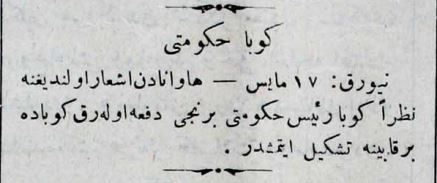 كوبا حكومتى
نيورق: ١٧ مايس — هاوانادن اشعار اولنديغنه
نظراً كوبا رئيس حكومتى برنجى دفعه اوله‌رق كوباده
بر قابينه تشكيل ايتمشدر .